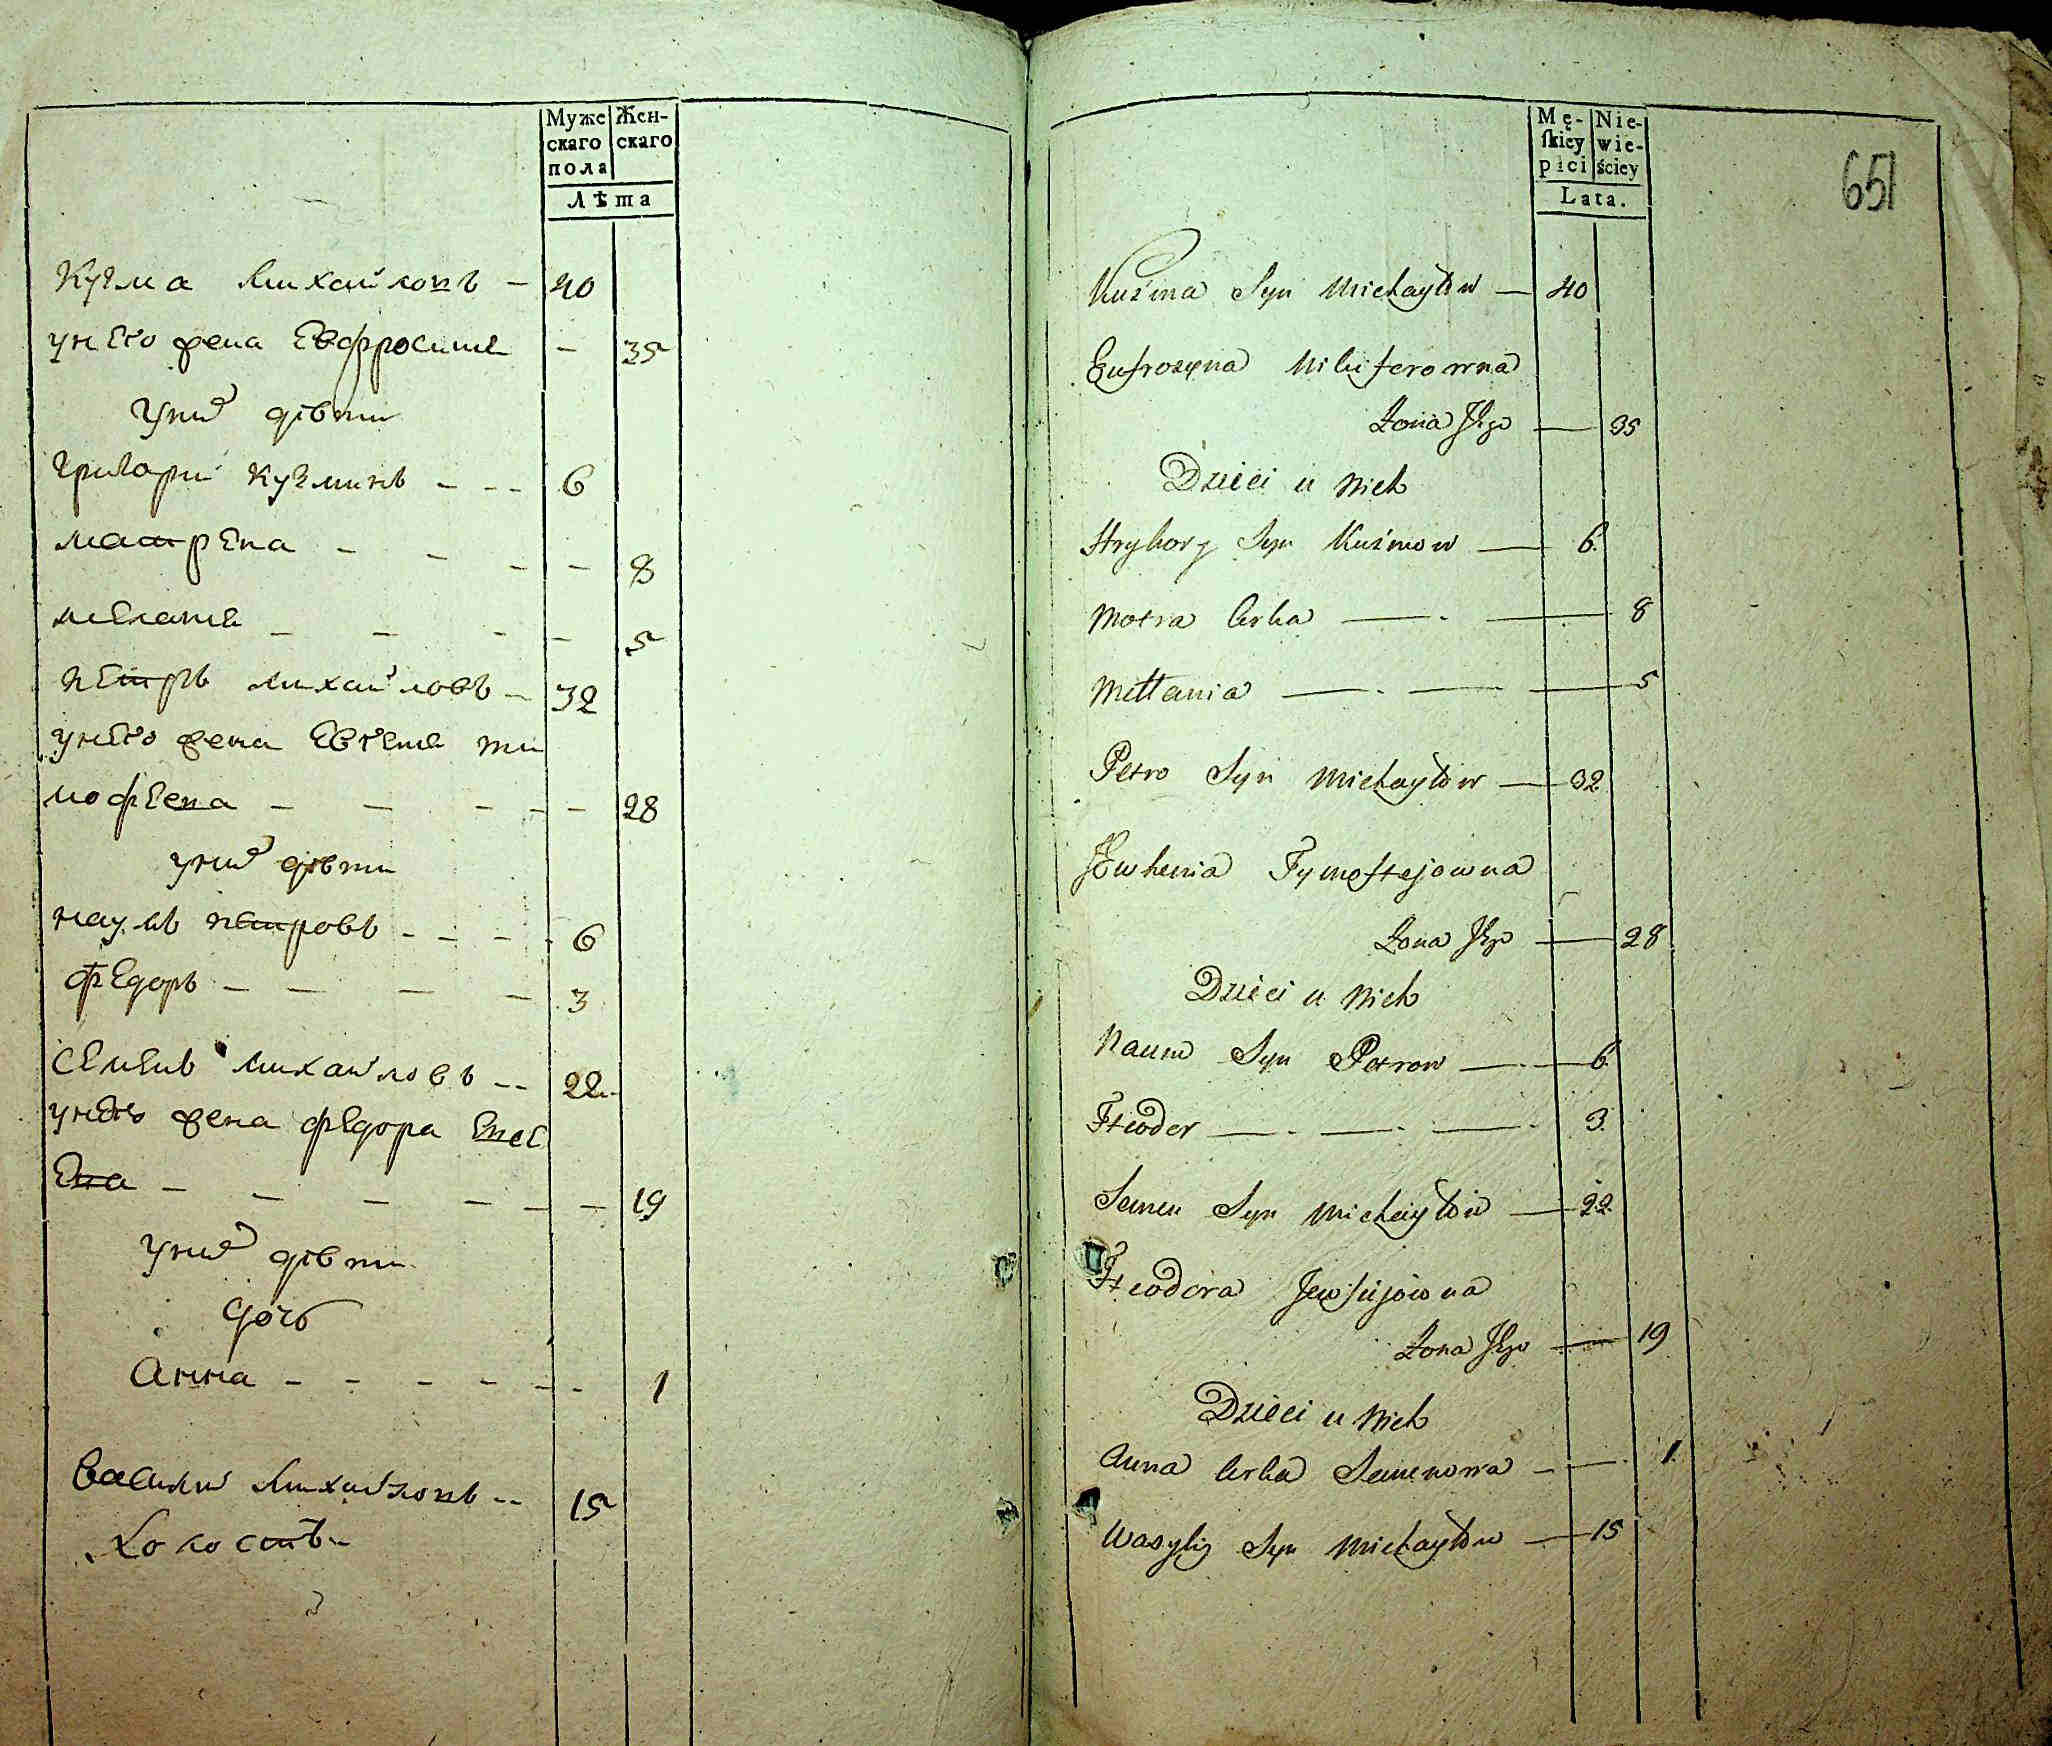 Муже
скаго
пола
Жен-
скаго
Лѣта
Кузма Михайловъ - 40
унего жена Евфросиния - 35
унихъ дѣти
Григори Кузминъ - - - 6
матрена - - - - 8
мелания - - - - 5
петръ михайловъ - 32
унего жена Евгения ти
мофеева - - - - - 28
унихъ дѣти
наумъ петровъ - - - - 6
федоръ - - - - 3
семенъ михайловъ - - 22
унего жена федора
- - - - - - 19
унихъ дѣти
дочь
Анна - - - - - - 1
василий Михайловъ - - 15
холостъ
Mę-
skiey
płci
Nie-
wie-
ściey
Lata.
651
Kuźma Syn Michayłow — 40
Eufrozyna Nikiferowna
Żona Jego — 35
Dzieci u Nich
Hryhory Syn Kuźmow — 6.
Motra Corka — . — 8
Mełłania — . — — 5
Petro Syn Michayłow — 32
Jewhenia Tymofiejowna
Żona Jego — 28
Dzieci u Nich
Naum Syn Petrow — . — 6
Fieoder — . — . — . 3.
Semen Syn Michayłow — 22.
Fieodora Jewsiejowna
Żona Jego — 19
Dzieci u Nich
Anna Corka Semenowa - — . 1.
Wasyliy Syn Michayłow — 15